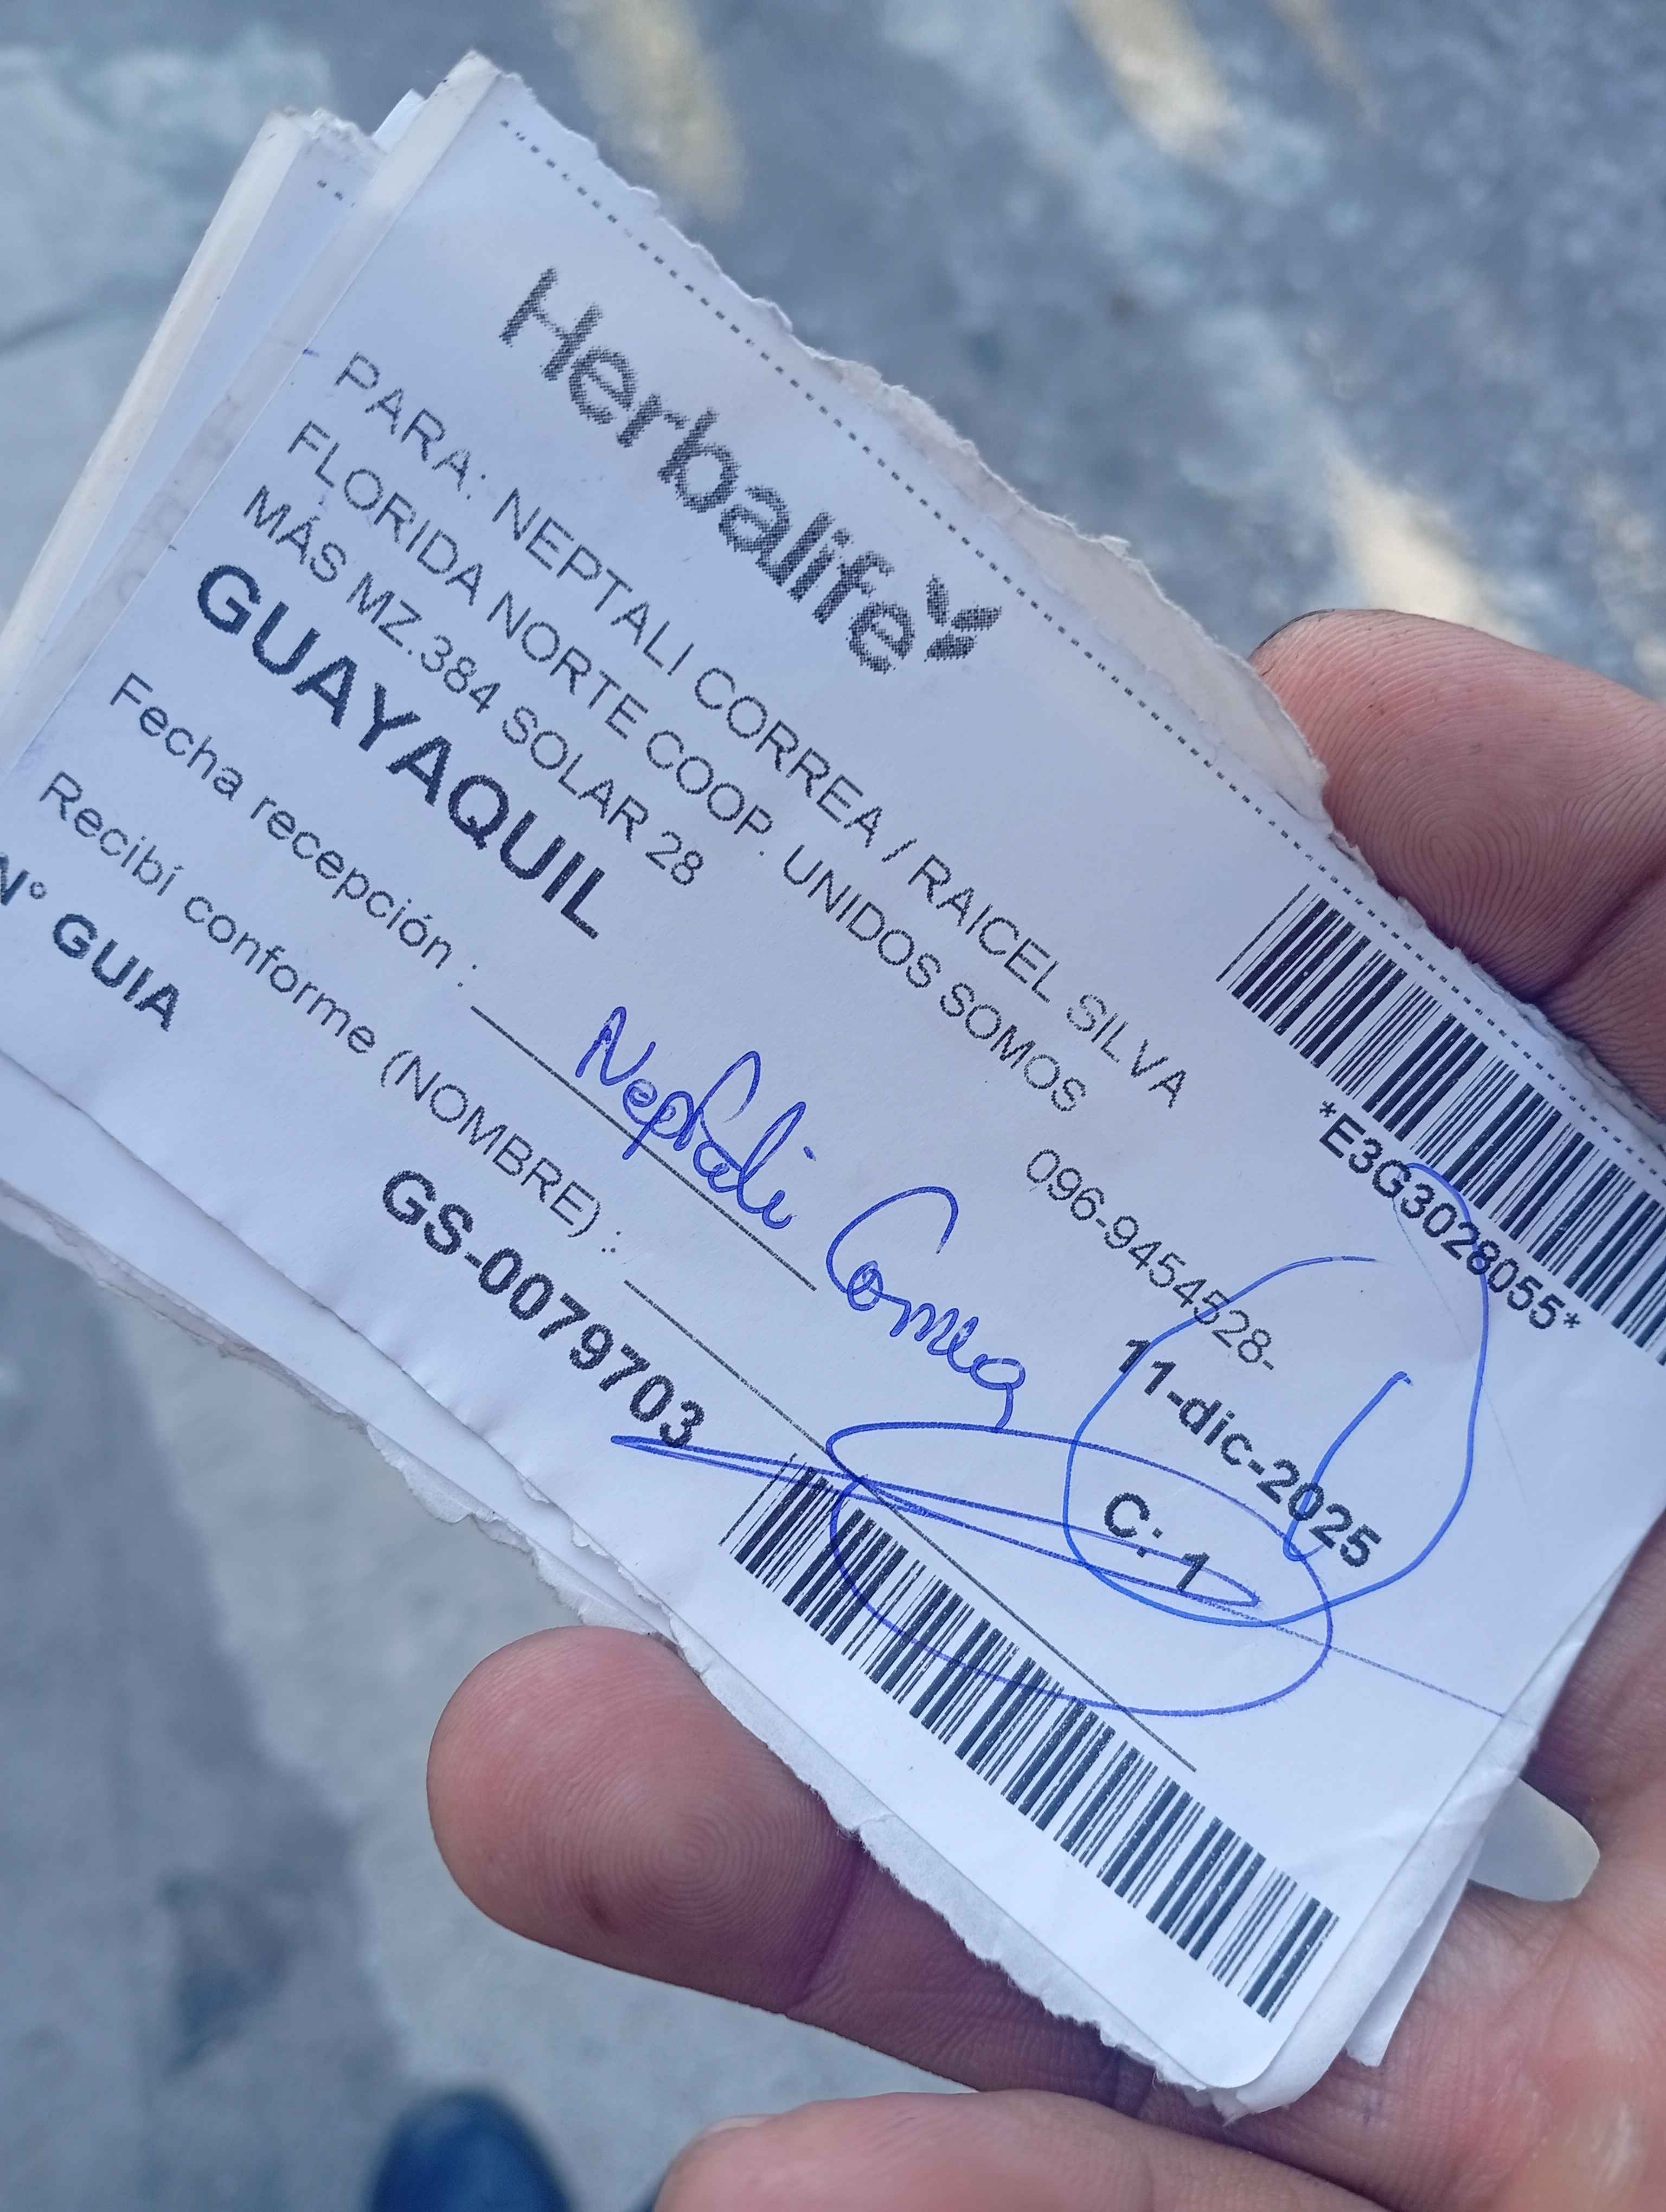 Herbalife
*E3G3028055*
PARA: NEPTALI CORREA / RAICEL SILVA
FLORIDA NORTE COOP. UNIDOS SOMOS
MÁS MZ.384 SOLAR 28
096-9454528-
GUAYAQUIL
11-dic-2025
Fecha recepción :
C: 1
Neptali Correa
Recibí conforme (NOMBRE) :
N° GUIA
GS-0079703